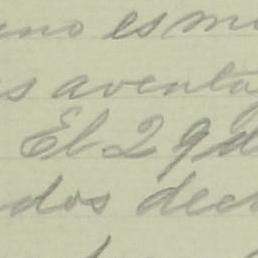 ano es m
s aventa
El 29 d
dos dec